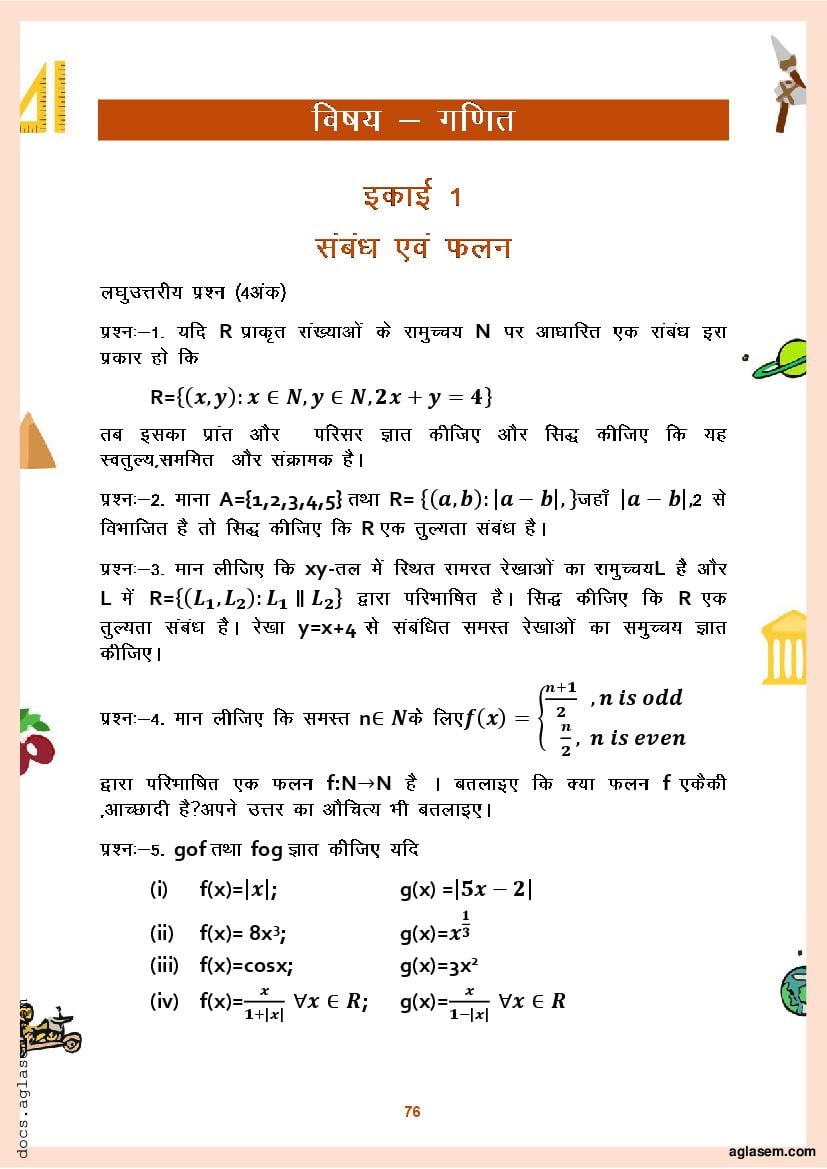 विषय – गणित
इकाई 1
संबंध एवं फलन
लघुउत्तरीय प्रश्न (4अंक)
प्रश्नः–1. यदि R प्राकृत संख्याओं के रामुच्चय N पर आधारित एक संबंध इरा
प्रकार हो कि
R={(x,y): x ∈ N, y ∈ N, 2x + y = 4}
तब इसका प्रांत और परिसर ज्ञात कीजिए और सिद्ध कीजिए कि यह
स्वतुल्य,सममित और संक्रामक है।
प्रश्नः–2. माना A={1,2,3,4,5} तथा R= {(a,b): |a − b|, }जहाँ |a − b|,2 से
विभाजित है तो सिद्ध कीजिए कि R एक तुल्यता संबंध है।
प्रश्नः–3. मान लीजिए कि xy-तल में स्थित रामरत रेखाओं का रामुच्चयL है और
L में R={(L₁, L₂): L₁ ∥ L₂} द्वारा परिभाषित है। सिद्ध कीजिए कि R एक
तुल्यता संबंध है। रेखा y=x+4 से संबंधित समस्त रेखाओं का समुच्चय ज्ञात
कीजिए।
प्रश्नः–4. मान लीजिए कि समस्त n∈ Nके लिएf(x) = { (n+1)/2 , n is odd
n/2, n is even
द्वारा परिभाषित एक फलन f:N→N है । बतलाइए कि क्या फलन f एकैकी
,आच्छादी है?अपने उत्तर का औचित्य भी बतलाइए।
प्रश्नः–5. gof तथा fog ज्ञात कीजिए यदि
(i) f(x)=|x|; g(x) =|5x − 2|
(ii) f(x)= 8x³; g(x)=x^(1/3)
(iii) f(x)=cosx; g(x)=3x²
(iv) f(x)=x/(1+|x|) ∀x ∈ R; g(x)=x/(1−|x|) ∀x ∈ R
76
docs.aglasem
aglasem.com